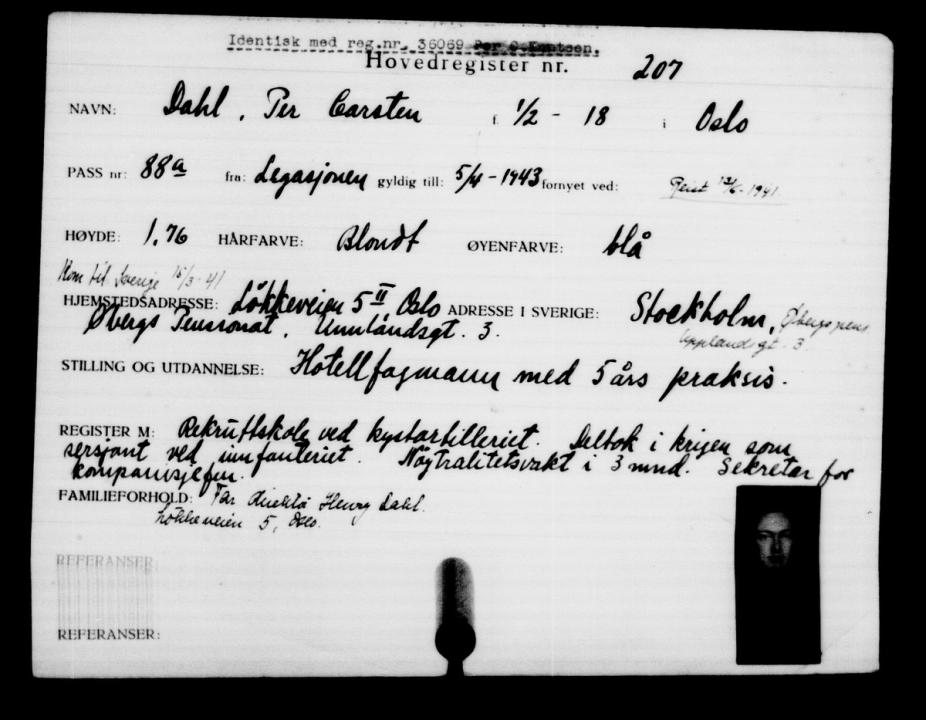 Identisk med reg.nr. 36069 Per C. Knutsen.
Hovedregister nr. 207
NAVN: Dahl, Per Carsten f. 1/2 - 18 i Oslo
PASS nr: 88a fra: Legasjonen gyldig till: 5/4 - 1943 fornyet ved: Reist 1941
HØYDE: 1.76 HÅRFARVE: Blondt ØYENFARVE: blå
Kom til Sverige 15/3-41
HJEMSTEDSADRESSE: Løkkeveien 5 II Oslo ADRESSE I SVERIGE: Stockholm, Øbergs pens
Øbergs Pensionat, Ummlandsgt. 3. Upplandsgt. 3.
STILLING OG UTDANNELSE: Hotellfagmann med 5 års praksis.
REGISTER M: Rekruttskole ved kystartilleriet. Deltok i krigen som
sersjant ved innfanteriet. Nøytralitetsvakt i 3 mnd. Sekretær for
kompanisjefen.
FAMILIEFORHOLD: Far direktør Henry Dahl.
Løkkeveien 5, Oslo.
REFERANSER:
REFERANSER: